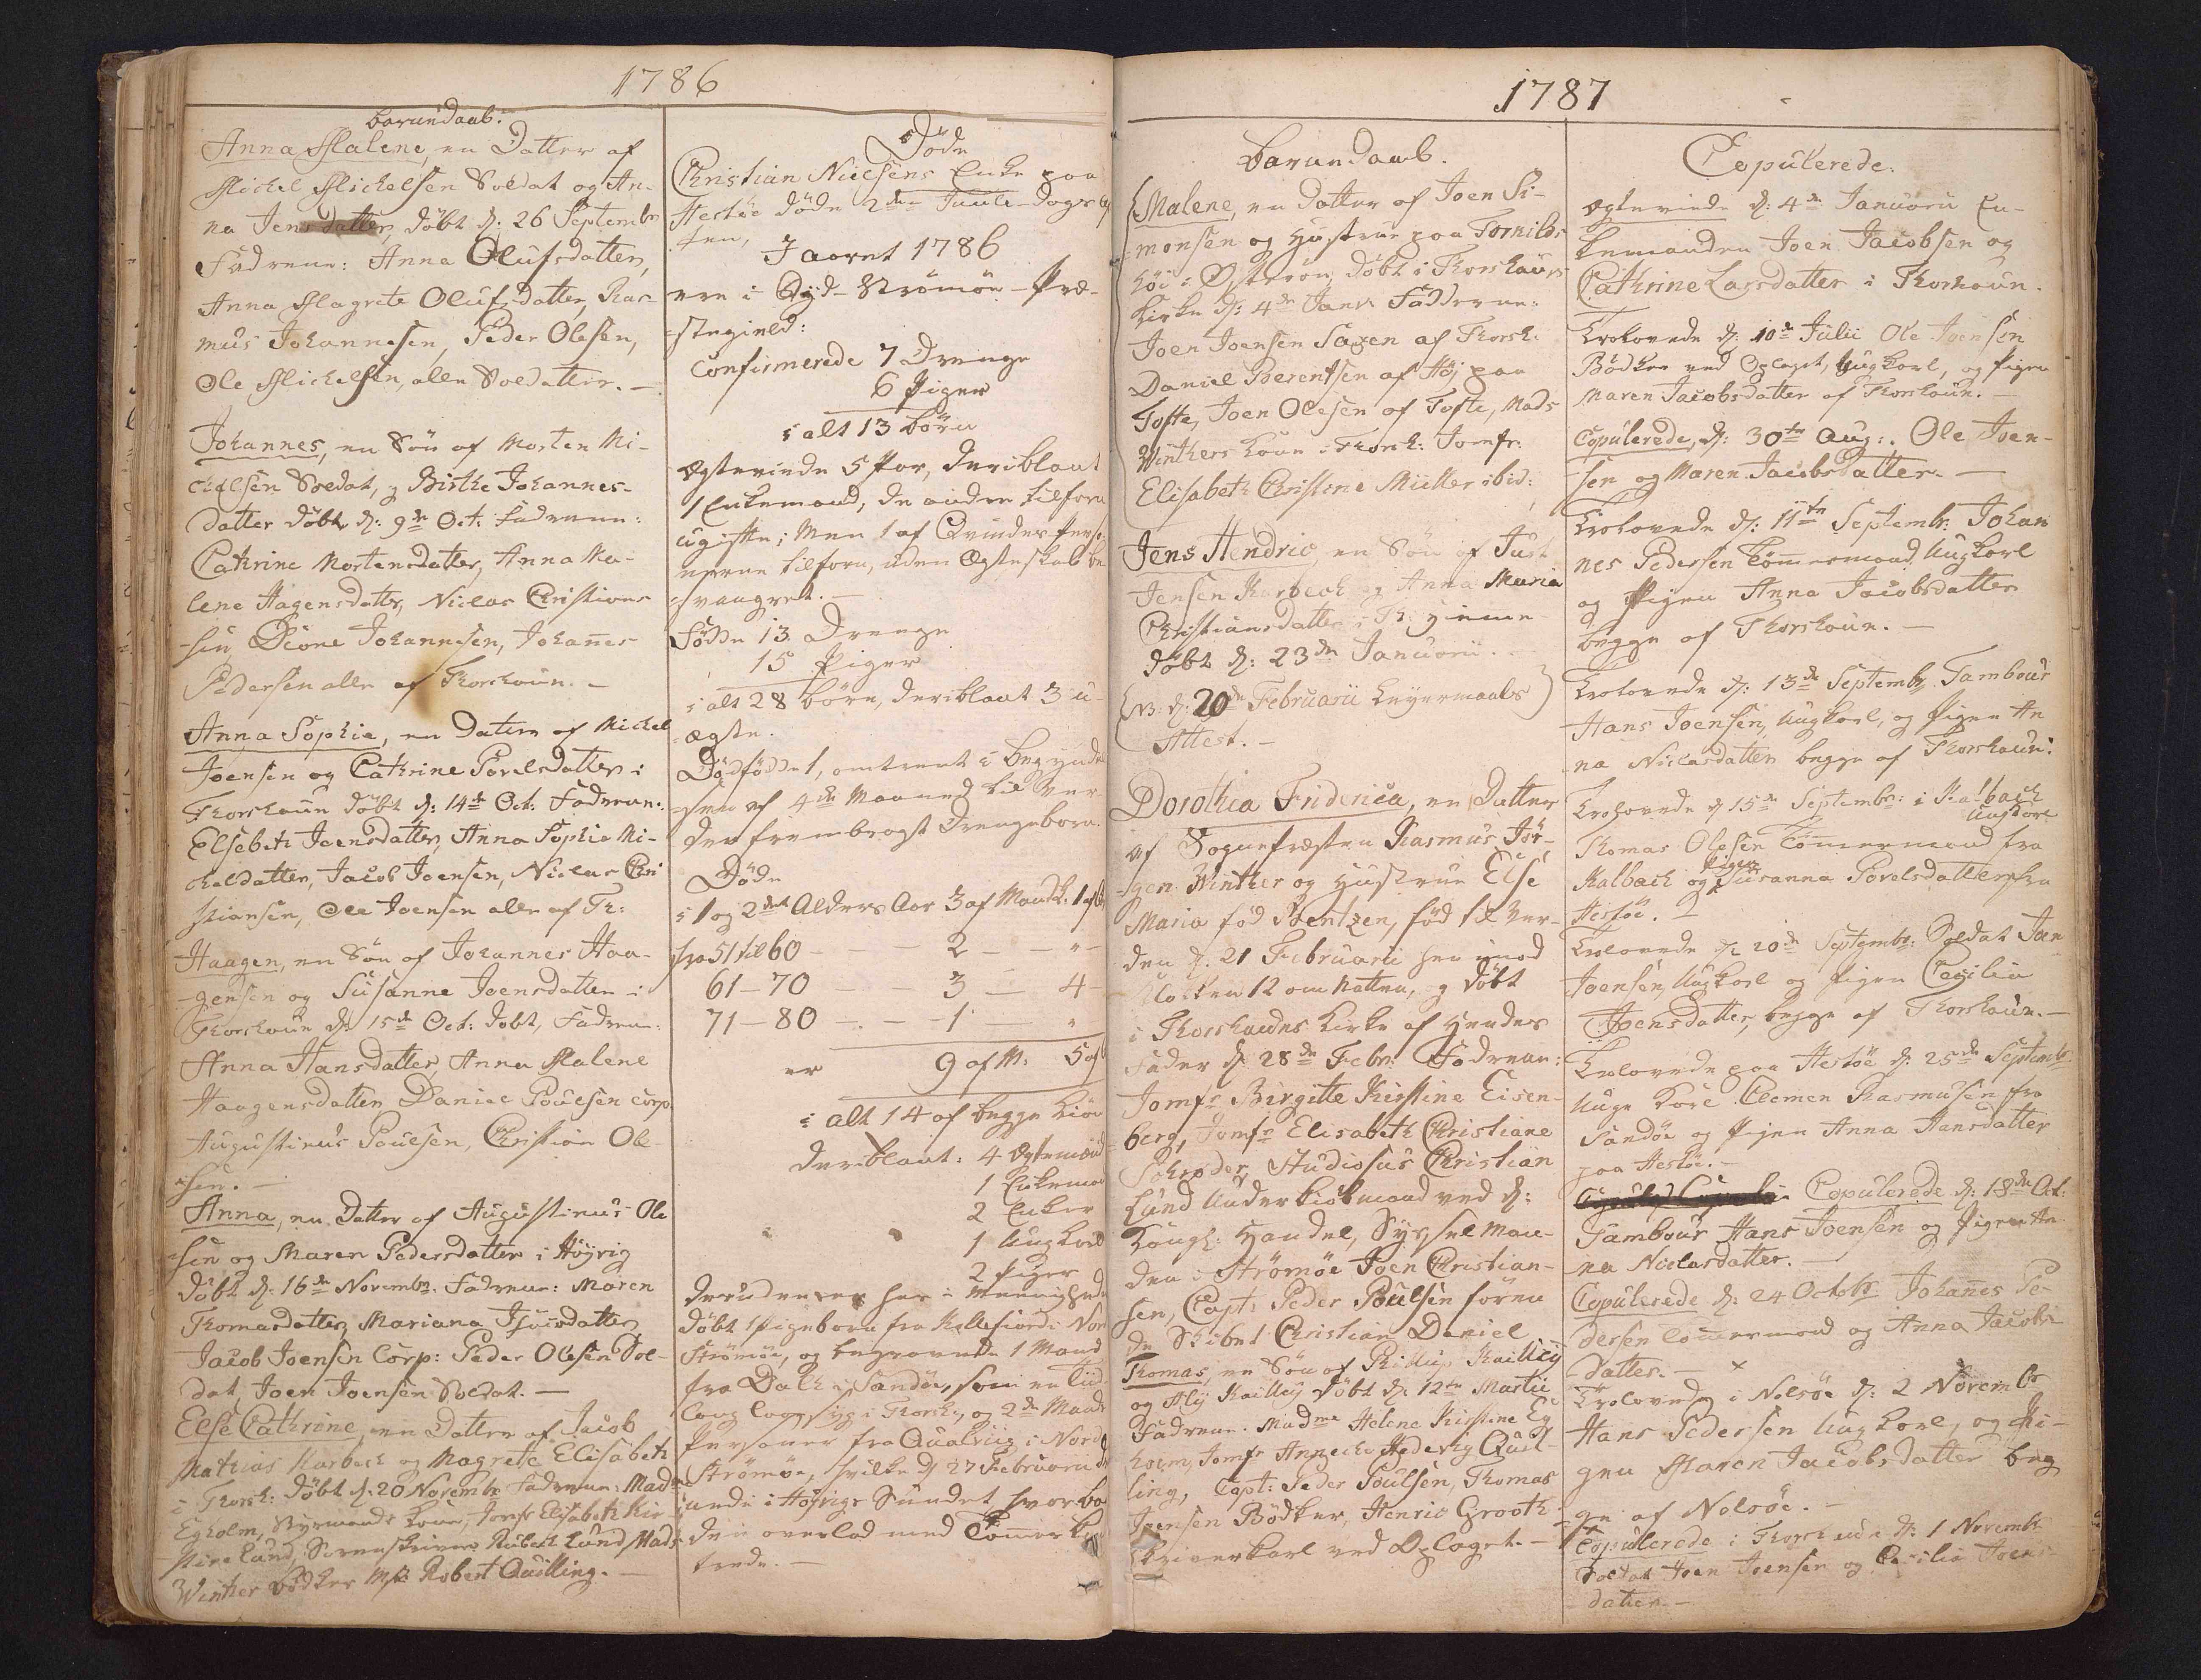 1786
barnedaab.
Anna Malene, en Datter af
Michel Michelsen Soldat og An-
na Jensdatter, døbt d: 26 Septembr
Fadrene: Anna Olufsdatter,
Anna Magrete Olufsdatter, Ras-
mus Johannesen, Peder Olesen,
Ole Michelsen, alle Soldatter. -
Johannes, en Søn af Morten Mi-
chelsen Soldat, og Birthe Johannes-
datter døbt d: 9de Oct: Fadrene:
Cathrine Mortensdatter, Anna Ma-
lene Hagensdattr, Niclas Christian
sen, Dione Johannesen, Johanes
Pedersen alle af Thorshaun. -
Anna Sophia, en Datter af Michel
Joensen og Cathrine Povelsdatter i
Thorshaun døbt d: 14de Oct: Fadrene:
Elsebeth Joensdatter, Anna Sophia Mi-
kelsdatter, Jacob Joensen, Niclas Chri
stiansen, Ole Joensen alle af Th:
Haagen, en Søn af Johannes Haa-
gensen og Susanne Joensdatter i
Thorshaun d: 15de Oct: døbt, Fadrene:
Anna Hansdatter, Anna Malene
Haagensdatter Daniel Poulsen corp.
Augustinus Poulsen, Christian Ole-
sen. -
Anna, en Datter af Augustinus Ole
sen og Maren Pedersdatter i Höjrig
døbt d: 16de Novembr. Fadrene: Maren
Thomasdatter, Mariana
Jacob Joensen Corp: Peder Olesen Sol-
dat, Joen Joensen Soldat. -
Else Cathrine, en Datter af Jacob
Mathias Harbech og Magrete Elisabeth
i Thorsh: døbt d. 20 Novembr Fadrene: Madme
Egholm, Styrmands kone, Jomfr Elisabeth Kir-
stine Lund, Sorenskriver Lund, Mads
Winther bødker Msr Robert Quilling. -
Døde
Christian Nielsens Enke paa
Hestøe døde 2den Juule-Dags Af
ten,
I aaret 1786
ere i Syd-Strømøe-Præ-
stegield:
Confirmerede 7 Drenge
6 Piger
i alt 13 børn
Ægteviede 5 Par, deriblant
1 Enkemand, de andre tilforn
ugifte; Men 1 af Qvindes Perso-
nerne tilforn, uden Ægteskab be-
svangret. -
Fødde 13 Drenge
15 Piger
i alt 28 børn, deriblant 3 u-
ægte.
Dødfødde 1, omtrent i begyndel
sen af 4de Maaned til Ver-
den frembragt Drengebarn.
Døde
i 1 og 2det Alders Aar 3 af Mandk: 1 af
fra 51 til 60 - - - 2 - - " -
61-70 - - 3 - 4 -
71-80 - - - 1 - - "
er 9 af M: 5 af
i alt 14 af begge kiøn
deriblant: 4 Ægtemænd
1 Enkemand
2 Enker
1 Ungkarl
2 Piger
Desuden er her i Menighed
døbt 1 Pigebarn fra Kollefiord i Nor
Strømøe, og begravede 1 Mand
fra Dahl i Sandøe, som en tiid
lang laae syg i Thorsh, og 2de Mands
Personer fra Qualviig i Norder
Strømøe, hvilke d 27 Februarii
i Höjvigs Sundet, hvor ba
den overlad med Tømmer kan
trede. -
1787
Barnedaab.
Malene, en datter af Joen Si-
monsen og Hustrue paa Tornilds
høi i Østerøe, døbt i Thorshauns
kirke d: 4de Janr. Fadderene:
Joen Joensen Saxen af Thorsh.
Daniel Berentsen af Høj paa
Tofte, Joen Olesen af Tofte, Mads
Winthers kone i Thorsh: Jomfr:
Elisabeth Christine Müller ibid:
Jens Hendric, en Søn af Just
Jensen Harbech og Anna Maria
Christiansdatter i Th: hjemme
døbt d: 23de Januarii. -
NB: d: 20de Februarii Leyermaals
Attest. -
Dorothia Friderica, en Datter
af Sognepræsten Rasmus Jør-
gen Winther og Hustrue Else
Maria fød Bentzen, fød til Ver-
den d. 21 Februarii hen imod
Klokken 12 om Natten, og døbt
i Thorshauns kirke af Hendes
Fader d: 28de Febr: Fadrene:
Jomfr Birgitte Kirstine Eisen-
berg, Jomfr Elisabeth Christiane
Schrøder, Studiosus Christian
Lund Underkiøbmand ved d:
kongl: Handel, Sysselman-
den i Strømøe Joen Christian-
sen, Capt: Peder Poulsen føren
de Skibet Christian Daniel
Thomas, en Søn af Phillip Kailleij
og Aly Kailley døbt d: 12te Martii
Fadrene. Madme Helene Kirstine Eg
holm, Jomfr Annecke Hedevig Quil-
ling, Capt: Peder Poulsen, Thomas
Joensen Bødker, Henric Grooth
Skriverkarl ved Oplaget. -
Copulerede.
Ægteviede d: 4de Januarii En-
kemanden Joen Jacobsen og
Cathrine Larsdatter i Thorshaun.
Trolovede d: 10de Julii Ole Joensen
Bødker ved Oplaget, Ungkarl, og Pigen
Maren Jacobsdatter af Thorshaun. -
Copulerede, d: 30te Aug:. Ole Joen-
sen og Maren Jacobsdatter. -
Trolovede d: 11te Septembr: Johan
nes Pedersen Tømmermand Ungkarl
og Pigen Anna Jacobsdatter
begge af Thorshaun. -
Trolovede d: 13de Septembr Tambour
Hans Joensen, Ungkarl, og Pigen An
na Niclasdatter begge af Thorshaun.
Trolovede d 15de Septembr: i Kalbach
Ungkarl
Thomas Olesen Tømmermand fra
Pigen
Kalbach og Susanna Povelsdatter fra
Hestøe. -
Trolovede d: 20de Septembr: Soldat Joen
Joensen, Ungkarl og Pigen Cecilia
Joensdatter, begge af Thorshaun. -
Trolovede paa Hestøe d: 25de Septembr
Unge karl Clemen Rasmusen fra
Sandøe og Pigen Anna Hansdatter
paa Hestøe. -
Copulerede d: 18de Oct:
Tambour Hans Joensen og Pigen An-
na Niclasdatter. -
Copulerede d: 24 Octobr Johanes Pe-
dersen Tømmermand og Anna Jacobs
datter. -
Trolovede i Nolsøe d: 2 Novembr
Hans Pedersen Ungkarl, og Pi-
gen Maren Jacobsdatter beg
ge af Nolsøe. -
Copulerede i Thorshaun d: 1 Novembr
Soldat Joen Joensen og Cecilia Joens-
datter. -